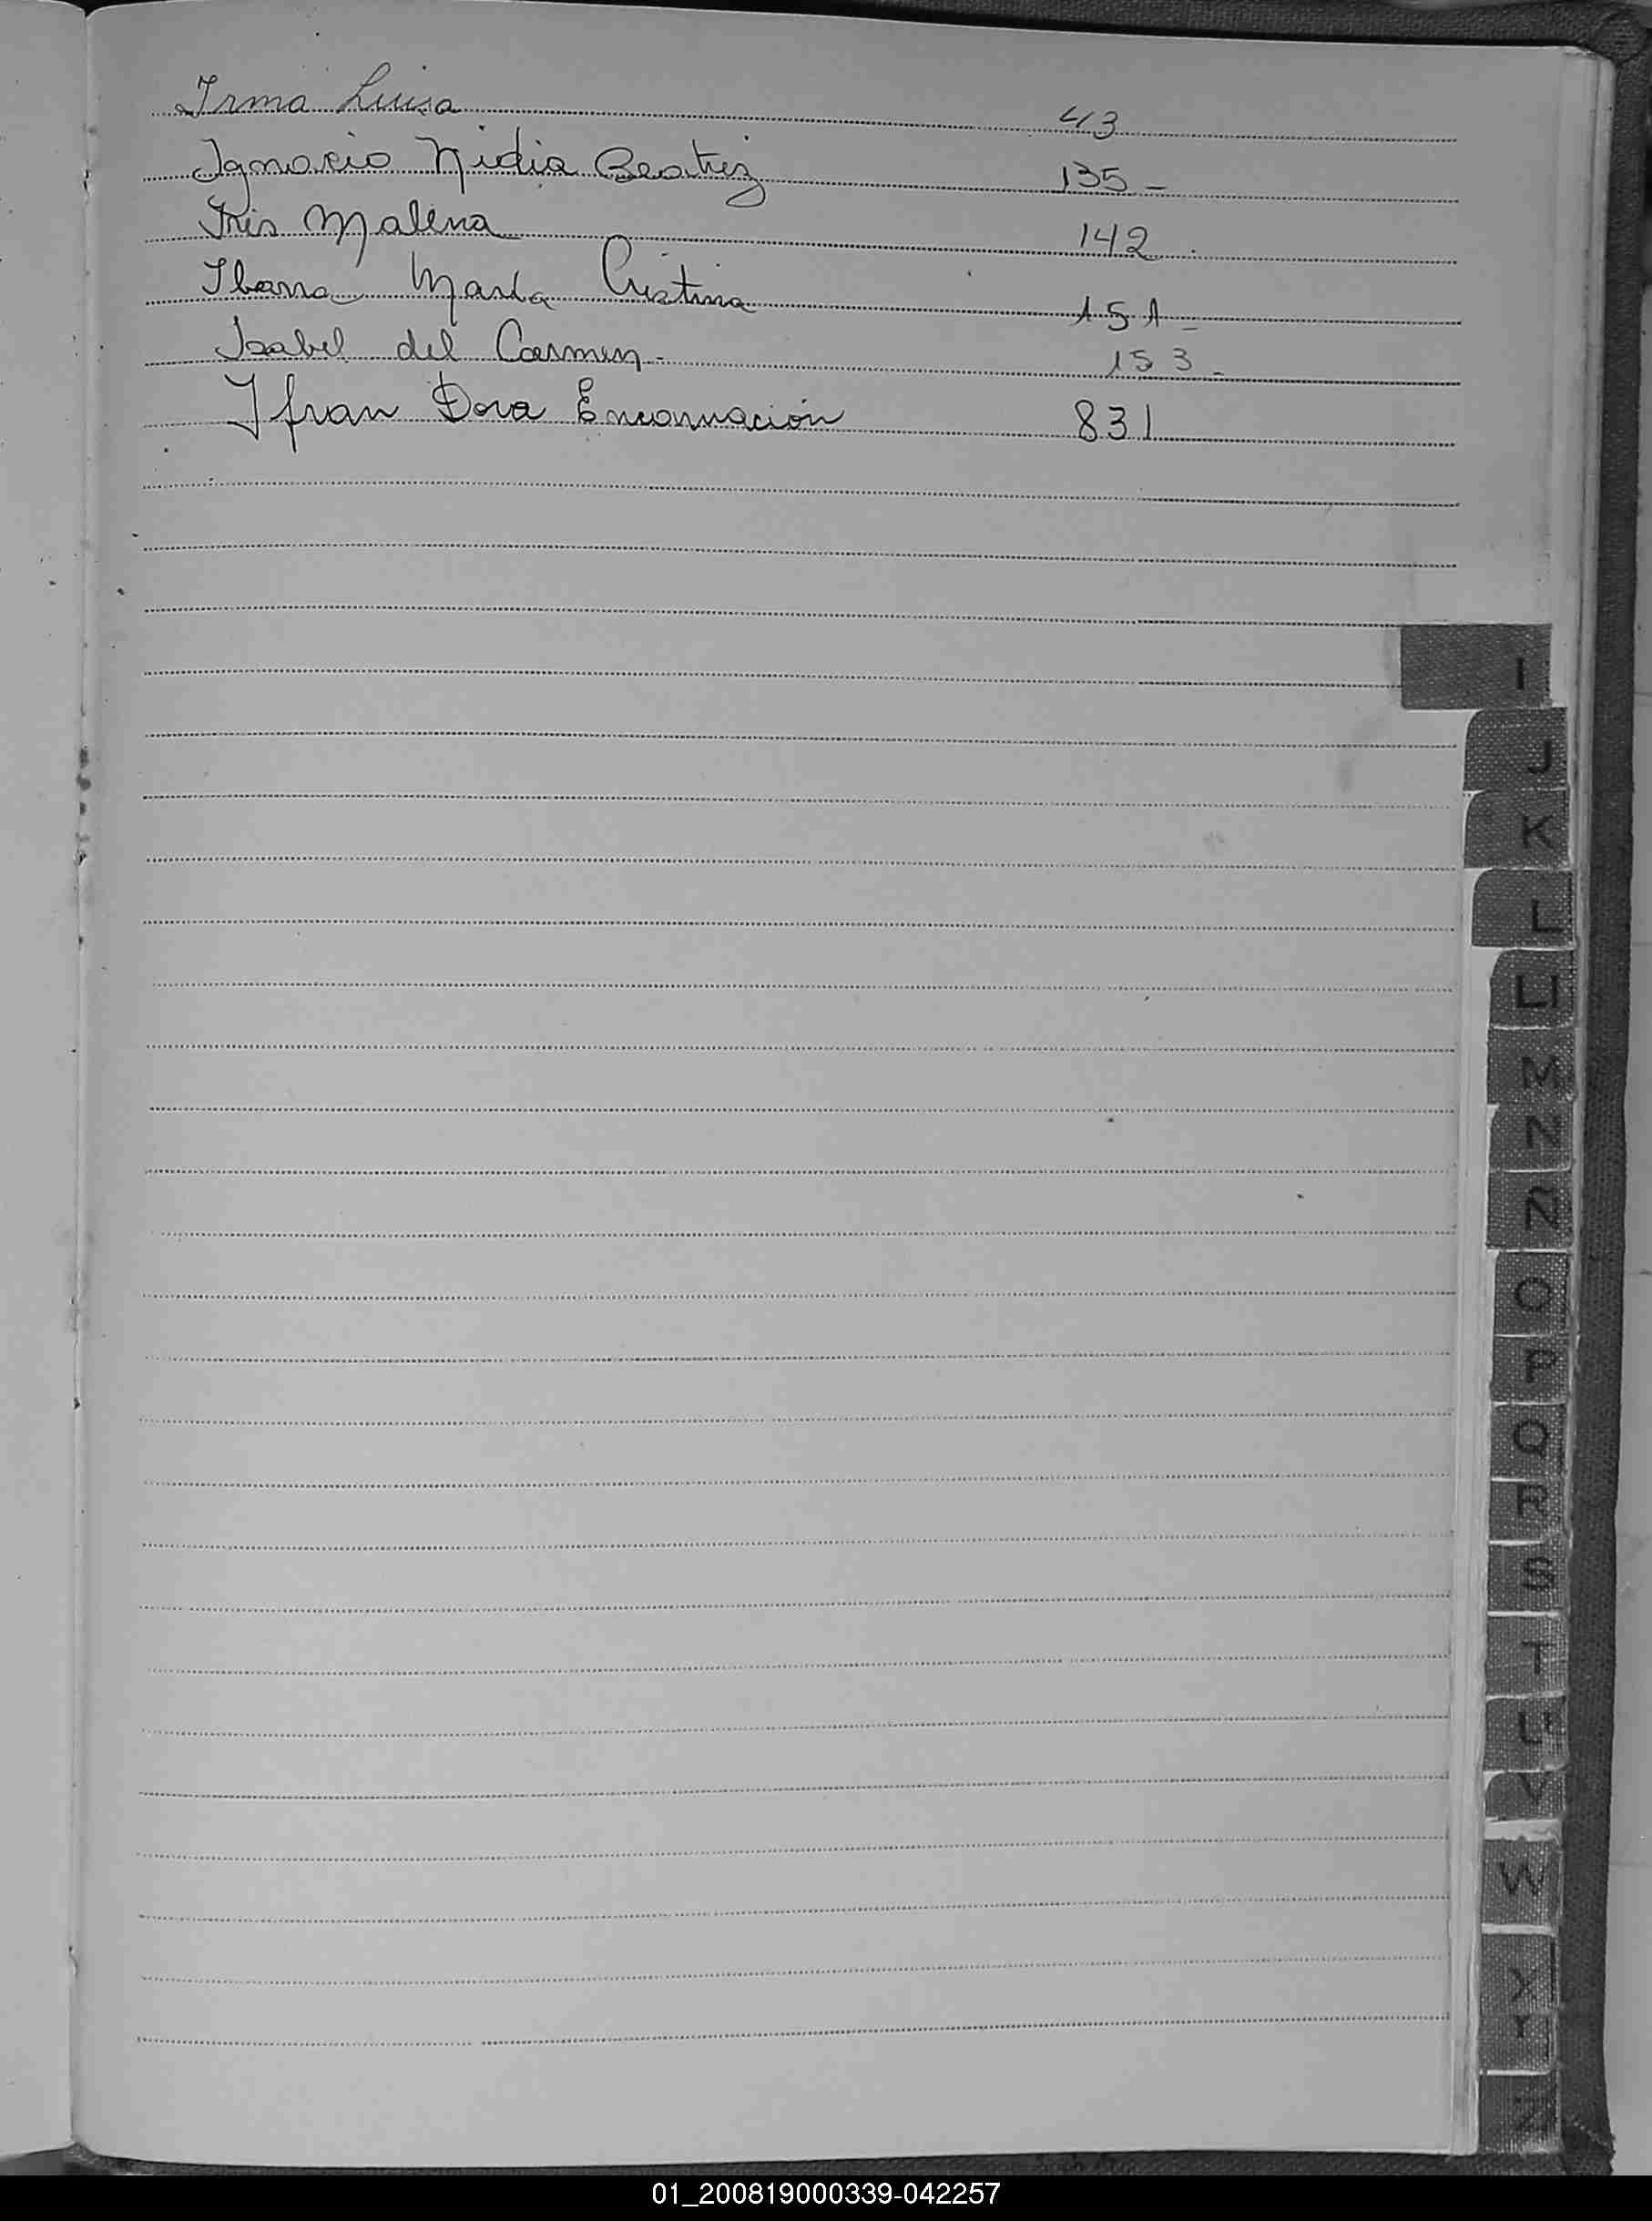 Irma Luisa 43
Ignacio Nidia Beatriz 135 -
Iris Malena 142.
Ibarra Marta Cristina 151 -
Isabel del Carmen - 153 -
Ifran Dora Encarnación 831
I
J
K
L
Ll
M
N
Ñ
O
P
Q
R
S
T
U
V
W
X
Y
Z
01_200819000339-042257